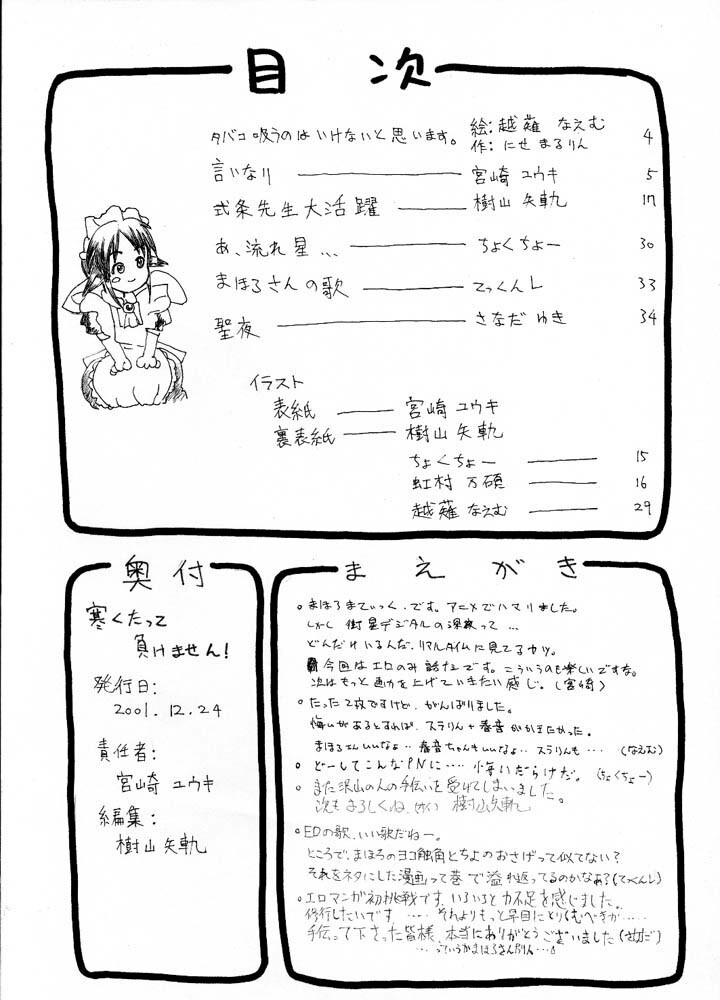 目次
タバコ吸うのはいけないと思います。 絵:越薙 なえむ 4
作:にせ まるりん
言いなり 宮崎 ユウキ 5
式条先生大活躍 樹山 矢軌 17
あ、流れ星... ちょくちょー 30
まほろさんの歌 てっくんL 33
聖夜 さなだ ゆき 34
イラスト
表紙 宮崎 ユウキ
裏表紙 樹山 矢軌
ちょくちょー 15
虹村 万碩 16
越薙 なえむ 29
奥付
寒くたって
負けません!
発行日:
2001.12.24
責任者:
宮崎 ユウキ
編集:
樹山 矢軌
まえがき
。まほろまてぃっく、です。アニメでハマりました。
しかし 衛星デジタルの深夜って...
どんだけいるんだ、リアルタイムに見てるヤツ。
今回はエロのみ話なしです。こういうのも楽しいですな。
次はもっと画力を上げていきたい感じ。(宮崎)
。たった2枚ですけど、がんばりました。
悔いがあるとすれば、スラりん+春音がかきたかった。
まほろさんいいなょ‥春音ちゃんもいいなょ‥スラりんも‥‥(なえむ)
。どーしてこんなPNに‥‥悔いだらけだ。(ちょくちょー)
。また沢山の人の手伝いを受けてしまいました。
次もよろしくね。 樹山矢軌
。EDの歌、いい歌だねー。
ところで、まほろのヨコ触角とちよのおさげって似てない?
それをネタにした漫画って巷で溢れ返ってるのかなぁ?(てっくんL)
。エロマンガ初挑戦です。いろいろと力不足を感じました。
修行したいです‥‥それよりもっと早目にとりくむべきが‥‥
手伝って下さった皆様、本当にありがとうございました(さなだ)